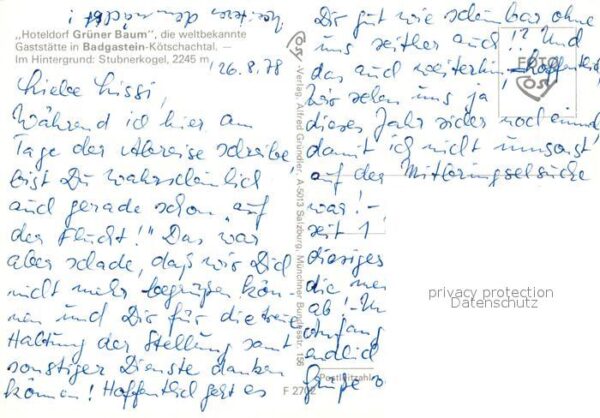 "Hoteldorf Grüner Baum", die weltbekannte
Gaststätte in Badgastein-Kötschachtal. —
Im Hintergrund: Stubnerkogel, 2245 m
26.8.78
Liebe Lissi,
Während ich hier am
Tage der Abreise schreibe,
bist Du wahrscheinlich
auch gerade schon "auf
der Flucht!" Das war
aber schade, daß wir Dich
nicht mehr begrüßen kön-
nen und Dir für die treue
Haltung der Stellung samt
sonstiger Dienste danken
können! Hoffentlich geht es
Dir gut wie scheinbar ohne
uns seither auch!? Und
das auch weiterhin, hoffentlich!
Wir sehen uns ja
dieses Jahr sicher noch einmal,
damit ich nicht umsonst
auf der Mitbringselsuche
war! –
seit 1
diesiges
die
ab!
Anfang
endlich
Grüße
Verlag Alfred Gründler, A-5013 Salzburg, Münchner Bundesstr. 156
FOTO
Postleitzahl
F 2702
privacy protection
Datenschutz